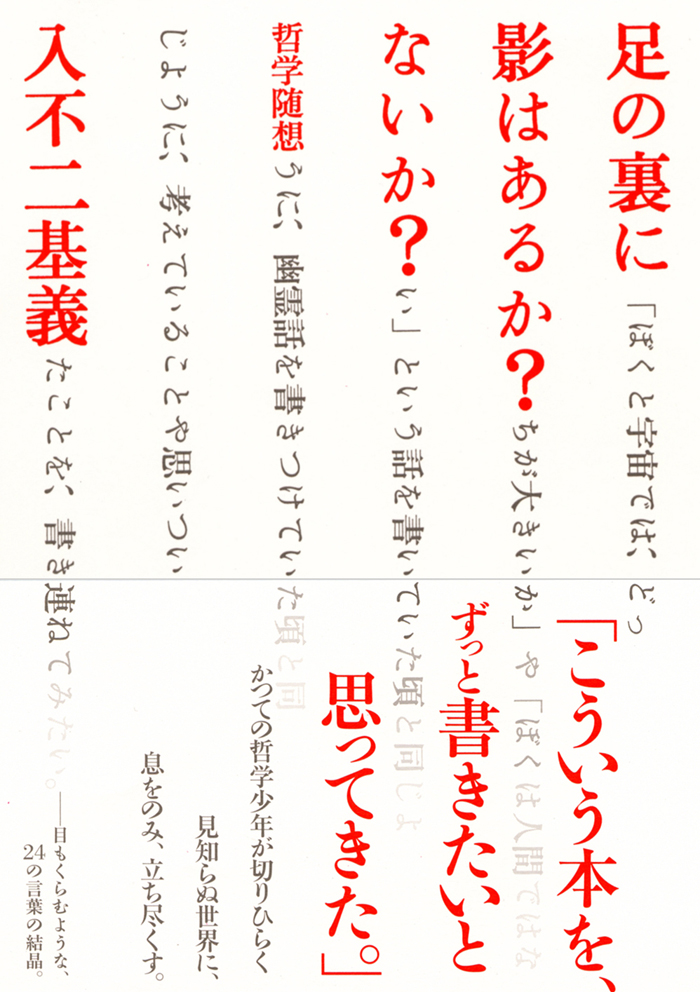 足の裏に
影はあるか？
ないか？
哲学随想
入不二基義
「ぼくと宇宙では、どっ
ちが大きいか」や「ぼくは人間ではな
い」という話を書いていた頃と同じよ
うに、幽霊話を書きつけていた頃と同
じように、考えていることや思いつい
たことを、書き連ねてみたい。
「こういう本を、
ずっと書きたいと
思ってきた。」
かつての哲学少年が切りひらく
見知らぬ世界に、
息をのみ、立ち尽くす。
――目もくらむような、
24の言葉の結晶。